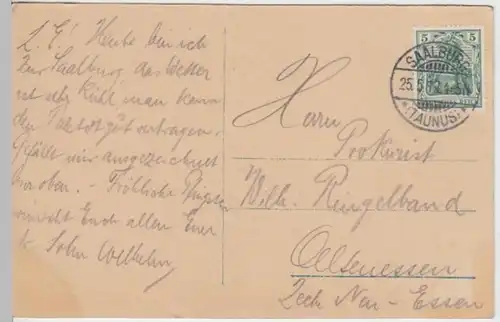 L. E.! Heute bin ich
zur Saalburg, das Wetter
ist sehr kühl man kann
den Paletot gut vertragen.
Gefällt mir ausgezeichnet
hier oben. - Fröhliche Pfingsten
wünscht Euch allen Euer
tr. Sohn Wilhelm
5 5
SAALBURG
25.5.
*(TAUNUS)*
Herrn
Prokurist
Wilh. Ringelband
Altenessen
Zeche Neu-Essen